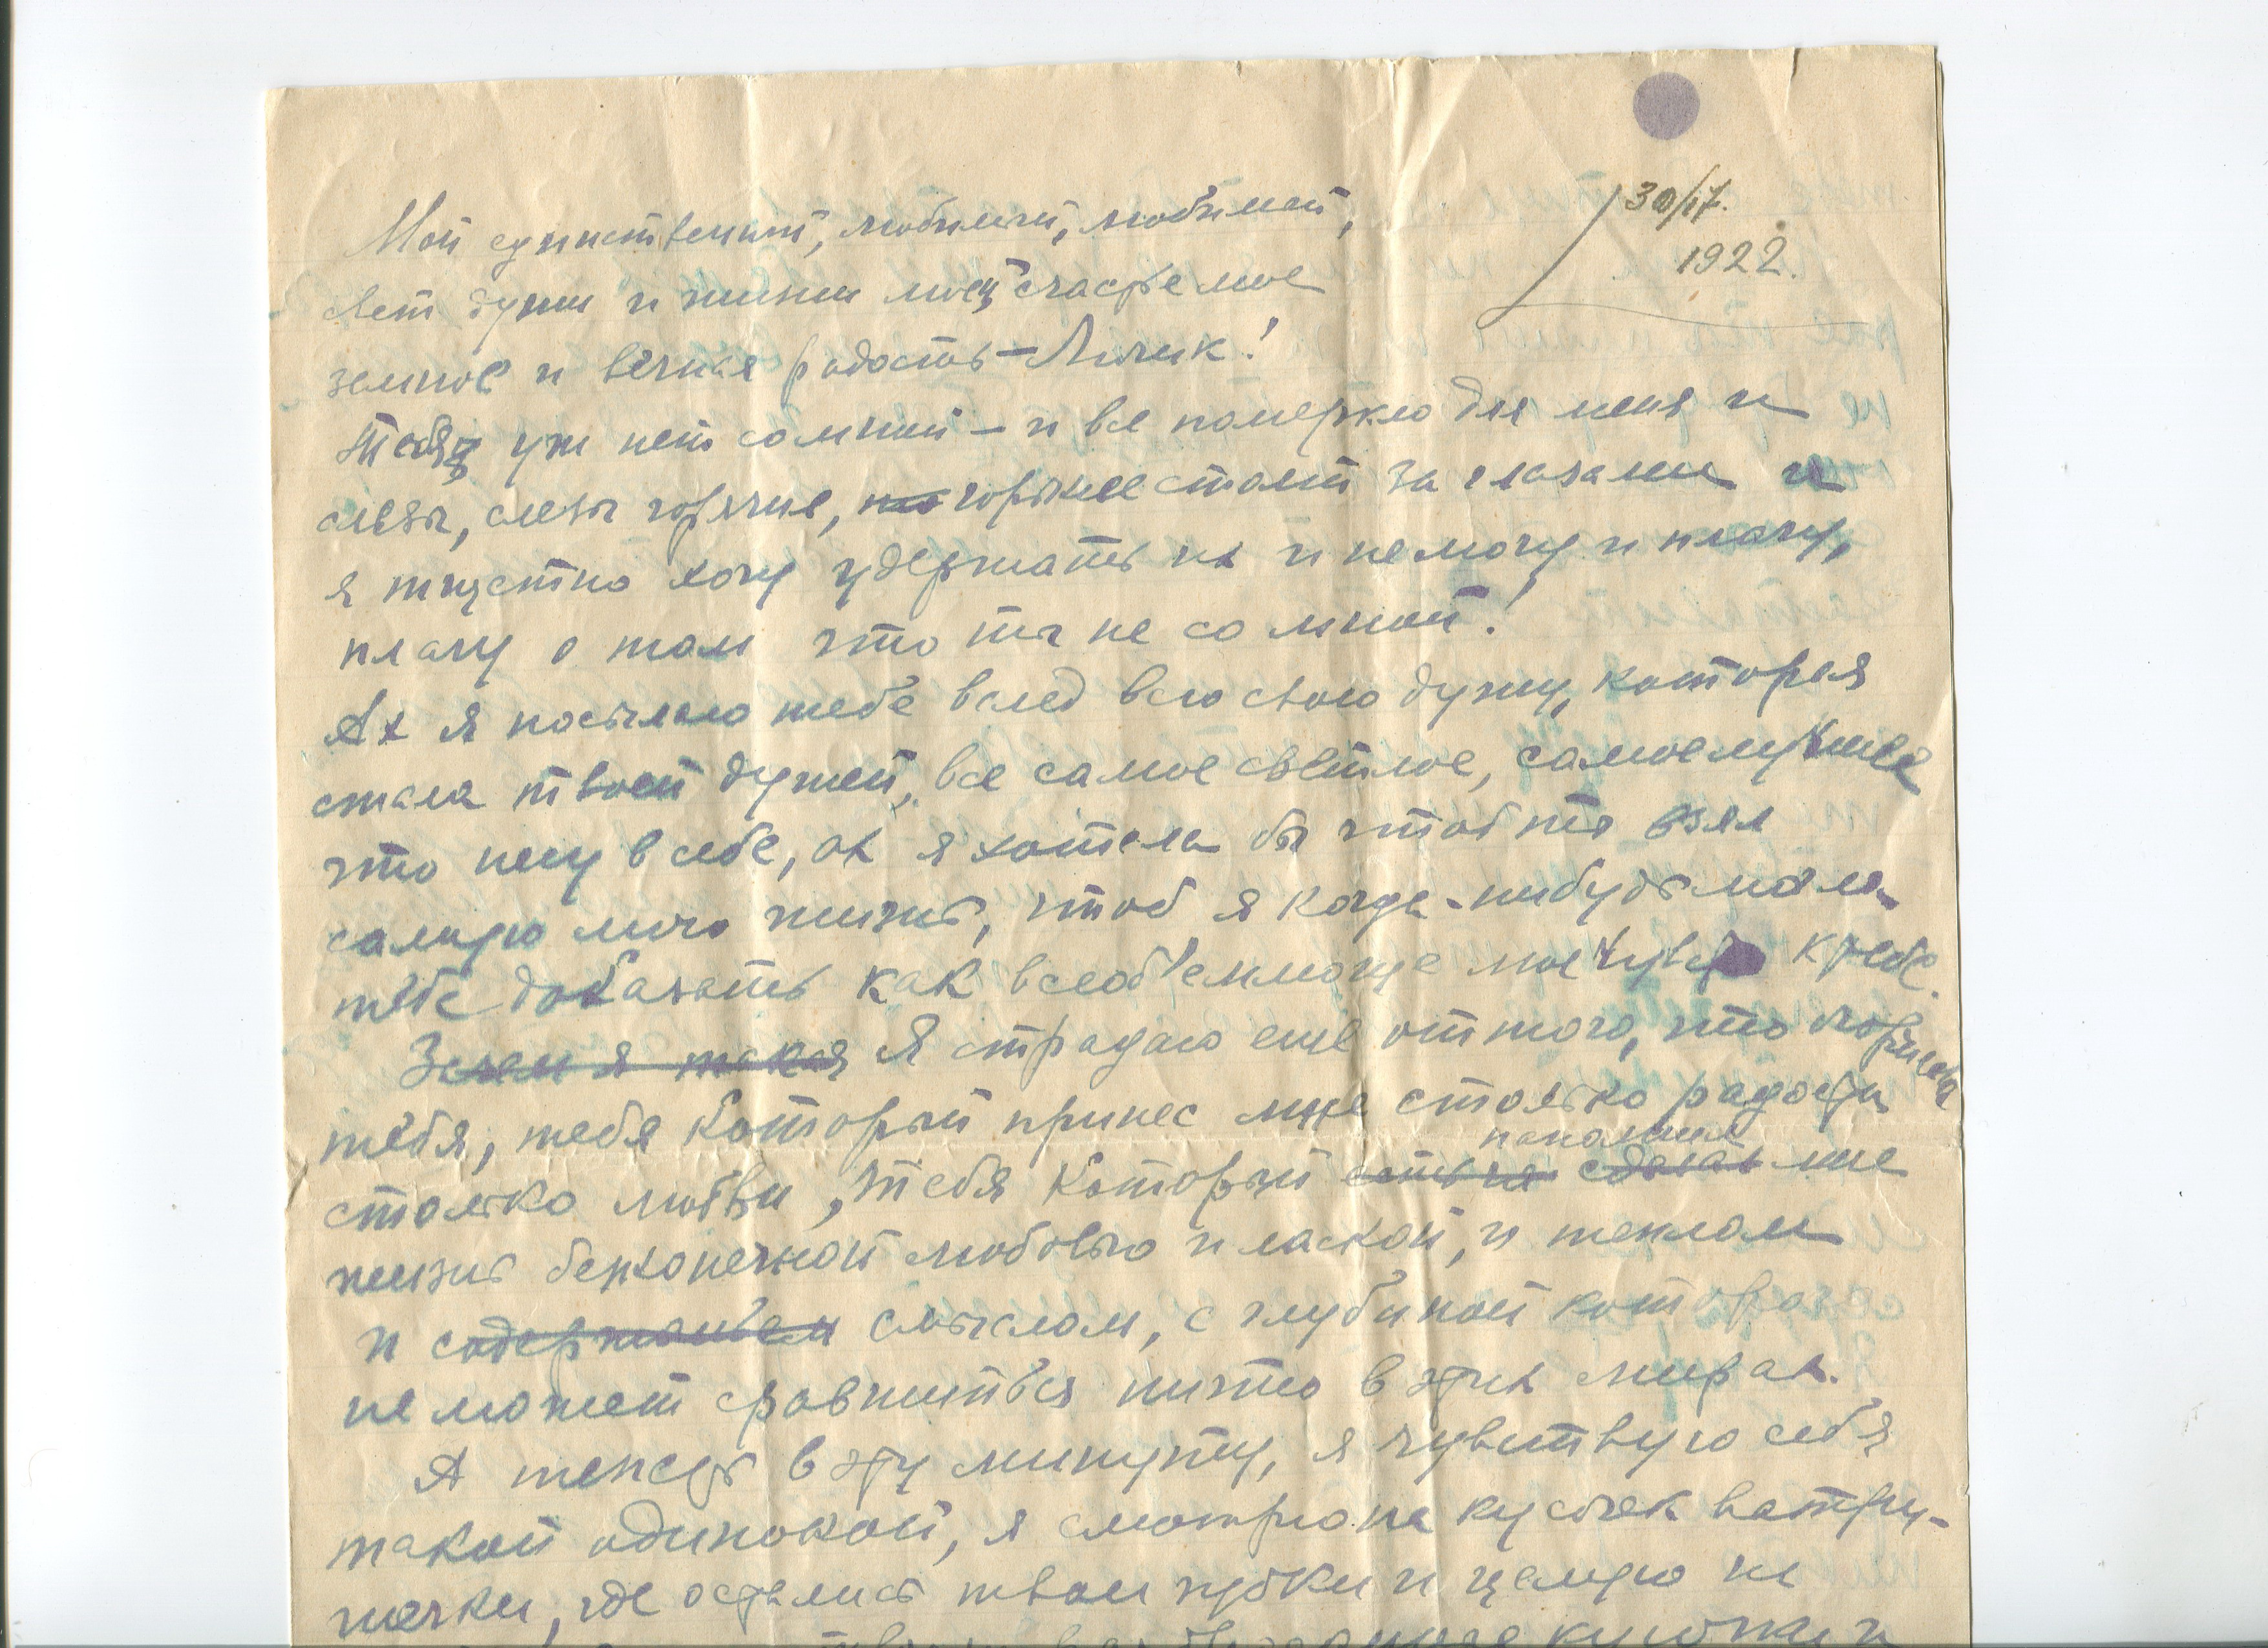 30/17.
1922.
Мой единственный, любимый, любимый,
свет души и жизни моей, счастье мое
земное и вечная радость – Лилик!
Тебя уж нет со мной – и все померкло для меня и
слезы, слезы горячие, горькие стоят за глазами и
я тщетно хочу удержать их и не могу и плачу,
плачу о том что ты не со мной!
Ах я посылаю тебе вслед всю свою душу, которая
стала твоей душой, все самое светлое, самое лучшее
что несу в себе, ах я хотела бы чтоб ты взял
самую мою жизнь, чтоб я когда-нибудь могла
тебе доказать как всеоб'емлюще мое чувство к тебе.
Зачем я такая Я страдаю еще оттого, что огорчила
тебя, тебя который принес мне столько радости
столько любви, тебя который
наполнил
сделал мне
жизнь бесконечной любовью и лаской, и теплом
и содержанием смыслом, с глубиной которого
не может сравниться ничто в этих мирах.
А теперь в эту минуту, я чувствую себя
такой одинокой, я смотрю на кусочек ватру-
шечки, где остались твои зубки и целую их
кусочка и